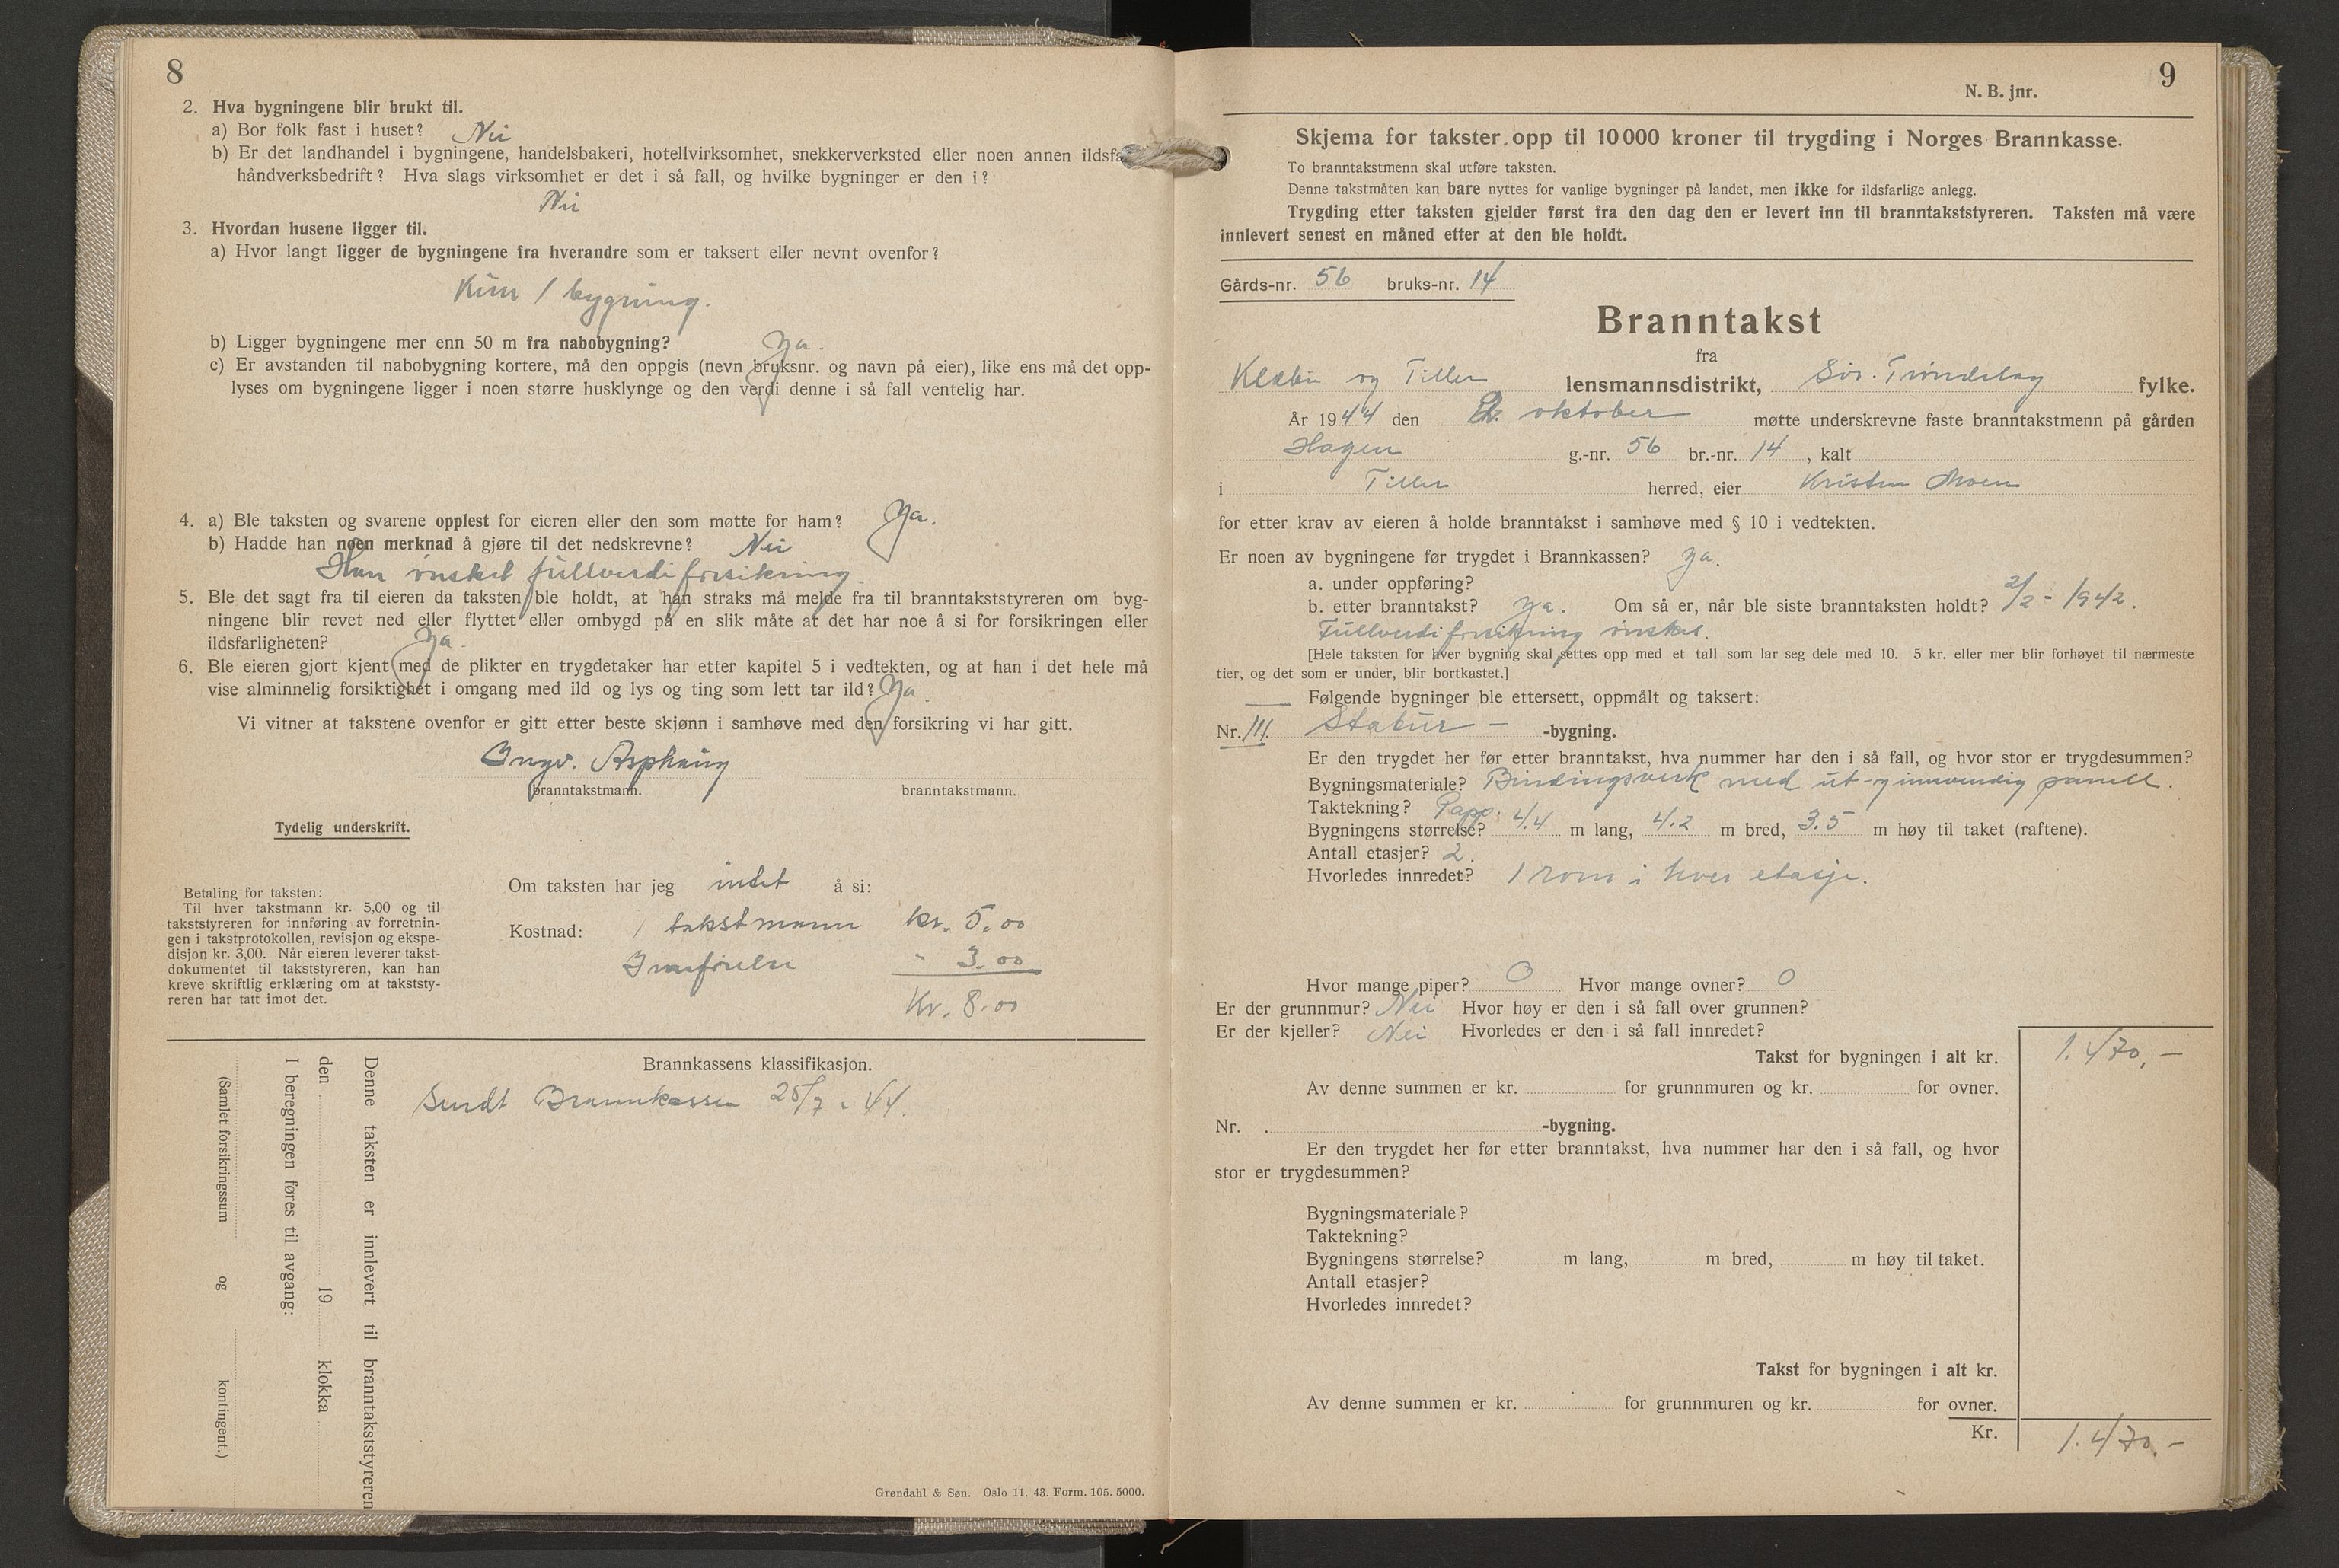 8
2. Hva bygningene blir brukt til.
a) Bor folk fast i huset? Nei
b) Er det landhandel i bygningene, handelsbakeri, hotellvirksomhet, snekkerverksted eller noen annen ildsfa
håndverksbedrift? Hva slags virksomhet er det i så fall, og hvilke bygninger er den i?
Nei
3. Hvordan husene ligger til.
a) Hvor langt ligger de bygningene fra hverandre som er taksert eller nevnt ovenfor?
Kun 1 bygning.
b) Ligger bygningene mer enn 50 m fra nabobygning? Ja.
c) Er avstanden til nabobygning kortere, må den oppgis (nevn bruksnr. og navn på eier), like ens må det opp-
lyses om bygningene ligger i noen større husklynge og den verdi denne i så fall ventelig har.
4. a) Ble taksten og svarene opplest for eieren eller den som møtte for ham? Ja.
b) Hadde han noen merknad å gjøre til det nedskrevne? Nei
Han ønsket fullverdiforsikring.
5. Ble det sagt fra til eieren da taksten ble holdt, at han straks må melde fra til branntakststyreren om byg-
ningene blir revet ned eller flyttet eller ombygd på en slik måte at det har noe å si for forsikringen eller
ildsfarligheten? Ja.
6. Ble eieren gjort kjent med de plikter en trygdetaker har etter kapitel 5 i vedtekten, og at han i det hele må
vise alminnelig forsiktighet i omgang med ild og lys og ting som lett tar ild? Ja.
Vi vitner at takstene ovenfor er gitt etter beste skjønn i samhøve med den forsikring vi har gitt.
Ingv. Asphaug
branntakstmann. branntakstmann.
Tydelig underskrift.
Betaling for taksten:
Til hver takstmann kr. 5,00 og til
takststyreren for innføring av forretnin-
gen i takstprotokollen, revisjon og ekspe-
disjon kr. 3,00. Når eieren leverer takst-
dokumentet til takststyreren, kan han
kreve skriftlig erklæring om at takststy-
reren har tatt imot det.
Om taksten har jeg intet å si:
Kostnad: 1 takstmann kr. 5.00
Innførelse " 3.00
Kr. 8.00
Denne taksten er innlevert til branntakststyreren
den 19 klokka
I beregningen føres til avgang:
(Samlet forsikringssum og kontingent.)
Brannkassens klassifikasjon.
Sendt Brannkassen 28/7 - 44.
Grøndahl & Søn. Oslo 11. 43. Form. 105. 5000.
9
N. B. jnr.
Skjema for takster opp til 10 000 kroner til trygding i Norges Brannkasse.
To branntakstmenn skal utføre taksten.
Denne takstmåten kan bare nyttes for vanlige bygninger på landet, men ikke for ildsfarlige anlegg.
Trygding etter taksten gjelder først fra den dag den er levert inn til branntakststyreren. Taksten må være
innlevert senest en måned etter at den ble holdt.
Gårds-nr. 56 bruks-nr. 14
Branntakst
fra
Klæbu og Tiller lensmannsdistrikt, Sør-Trøndelag fylke.
År 1944 den oktober møtte underskrevne faste branntakstmenn på gården
Hagen g.-nr. 56 br.-nr. 14, kalt
i Tiller herred, eier Kristen Moen
for etter krav av eieren å holde branntakst i samhøve med § 10 i vedtekten.
Er noen av bygningene før trygdet i Brannkassen? Ja.
a. under oppføring?
b. etter branntakst? Ja. Om så er, når ble siste branntaksten holdt? 2/2 - 1942.
Fullverdiforsikring ønskes.
[Hele taksten for hver bygning skal settes opp med et tall som lar seg dele med 10. 5 kr. eller mer blir forhøyet til nærmeste
tier, og det som er under, blir bortkastet.]
Følgende bygninger ble ettersett, oppmålt og taksert:
Nr. III. Stabur - -bygning.
Er den trygdet her før etter branntakst, hva nummer har den i så fall, og hvor stor er trygdesummen?
Bygningsmateriale? Bindingsverk med ut- og innvendig panell.
Taktekning? Papp.
Bygningens størrelse? 4.4 m lang, 4.2 m bred, 3.5 m høy til taket (raftene).
Antall etasjer? 2.
Hvorledes innredet? 1 rom i hver etasje.
Hvor mange piper? 0 Hvor mange ovner? 0
Er der grunnmur? Nei Hvor høy er den i så fall over grunnen?
Er der kjeller? Nei Hvorledes er den i så fall innredet?
Takst for bygningen i alt kr. 1.470,-
Av denne summen er kr. for grunnmuren og kr. for ovner.
Nr. -bygning.
Er den trygdet her før etter branntakst, hva nummer har den i så fall, og hvor
stor er trygdesummen?
Bygningsmateriale?
Taktekning?
Bygningens størrelse? m lang, m bred, m høy til taket.
Antall etasjer?
Hvorledes innredet?
Takst for bygningen i alt kr.
Av denne summen er kr. for grunnmuren og kr. for ovner.
Kr. 1.470.-